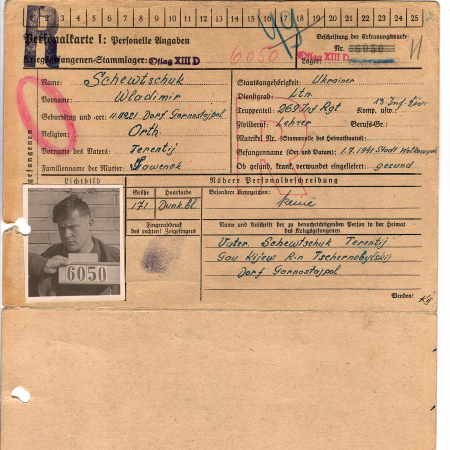 1 2 3 4 5 6 7 8 9 10 11 12 13 14 15 16 17 18 19 20 21 22 23 24 25
Personalkarte I: Personelle Angaben
Beschriftung der Erkennungsmarke
6050
Nr. 6050
Kriegsgefangenen-Stammlager: Oflag XIII D
Lager: Oflag XIII D
Name: Schewtschuk
Staatsangehörigkeit: Ukrainer
Vorname: Wladimir
Dienstgrad: Ltn.
Geburtstag und -ort: Dorf Gornostajpol
Truppenteil: 269 Inf Rgt Komp. usw.: 13. Inf. Div.
Religion: Orth.
Zivilberuf: Lehrer Berufs-Gr.:
Vorname des Vaters: Terentij
Matrikel Nr. (Stammrolle des Heimatstaates):
Familienname der Mutter: Sawenok
Gefangennahme (Ort und Datum): 1.7.1941 Stadt
Ob gesund, krank, verwundet eingeliefert: gesund
Lichtbild
Nähere Personalbeschreibung
Größe
Haarfarbe
Besondere Kennzeichen:
171
Dunk.bl.
Keine
Fingerabdruck
des rechten! Zeigefingers
Name und Anschrift der zu benachrichtigenden Person in der Heimat
des Kriegsgefangenen
6050
Vater. Schewtschuk Terentij
Gau Kijew R-n Tschernobylskij
Dorf Gornostajpol
Wenden!